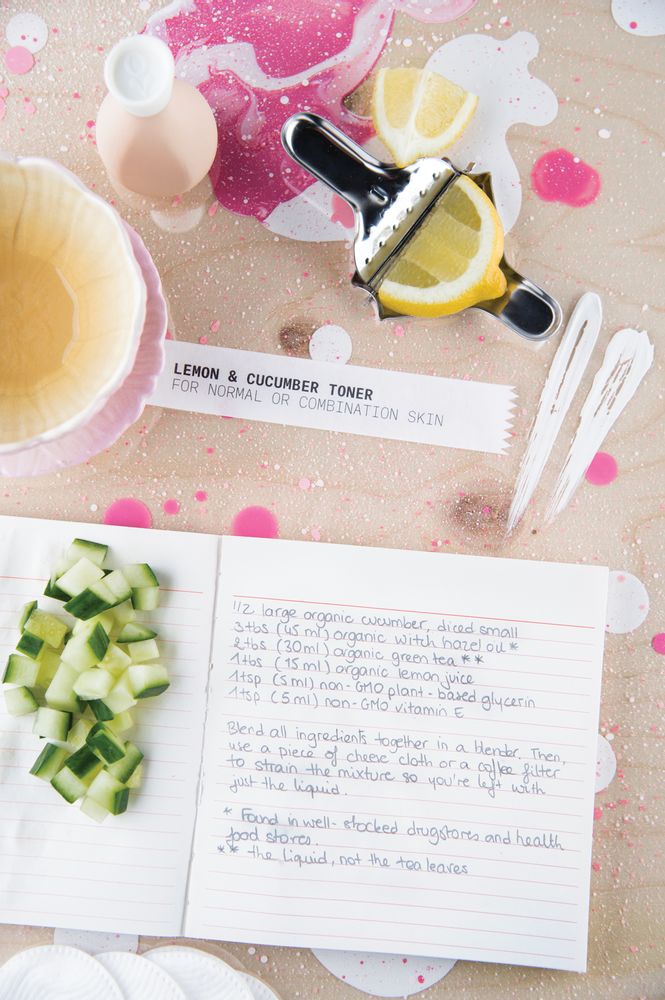 LEMON & CUCUMBER TONER
FOR NORMAL OR COMBINATION SKIN
1/2 large organic cucumber, diced small
3 tbs (45 ml) organic witch hazel oil *
2 tbs (30ml) organic green tea **
1 tbs (15 ml) organic lemon juice
1 tsp (5 ml) non-GMO plant-based glycerin
1 tsp (5 ml) non-GMO vitamin E
Blend all ingredients together in a blender. Then,
use a piece of cheese cloth or a coffee filter
to strain the mixture so you're left with
just the liquid.
* Found in well-stocked drugstores and health
food stores.
** the liquid, not the tea leaves